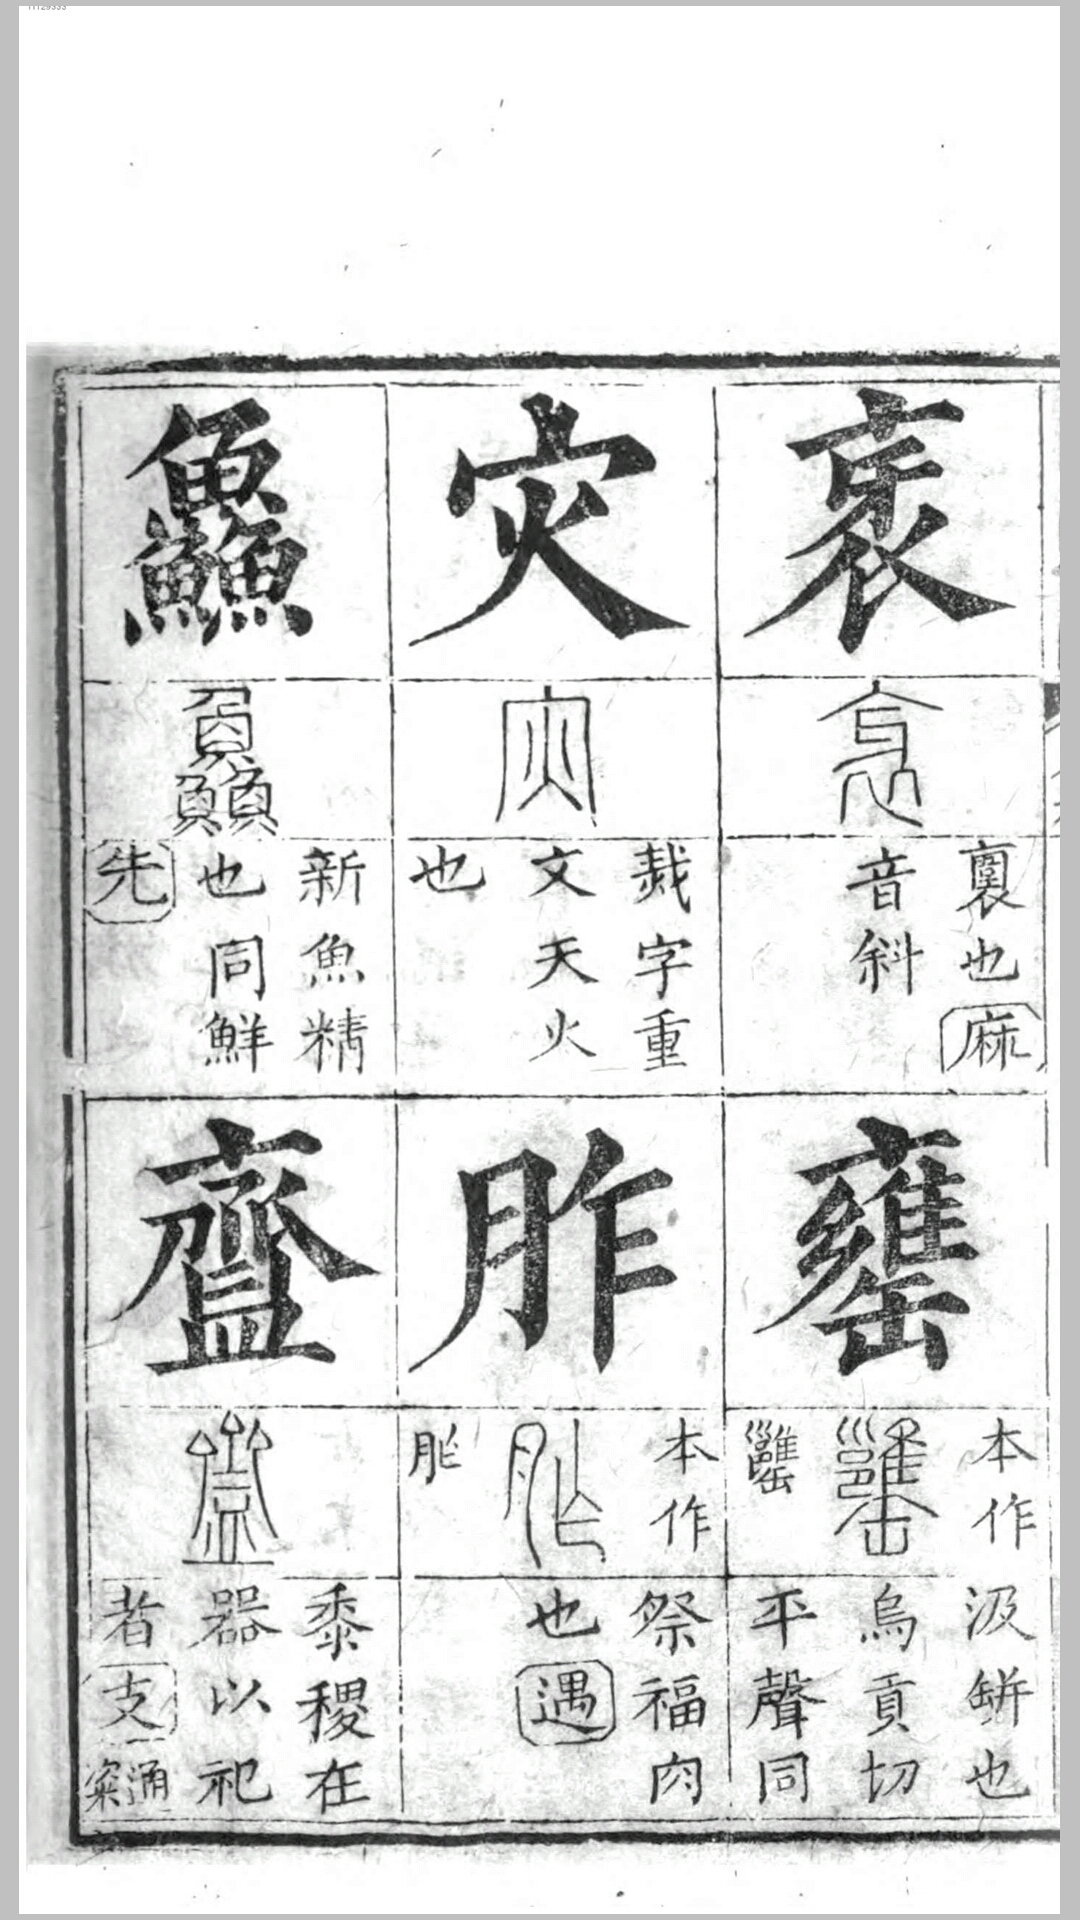 衺
裏也麻
音斜
灾
烖字重
文天火
也
鱻
新魚精
也同鮮
先
罋
本作
汲缾也
烏貢切
平聲同
胙
本作
祭福肉
也遇
齍
黍稷在
器以祀
者支
通粢